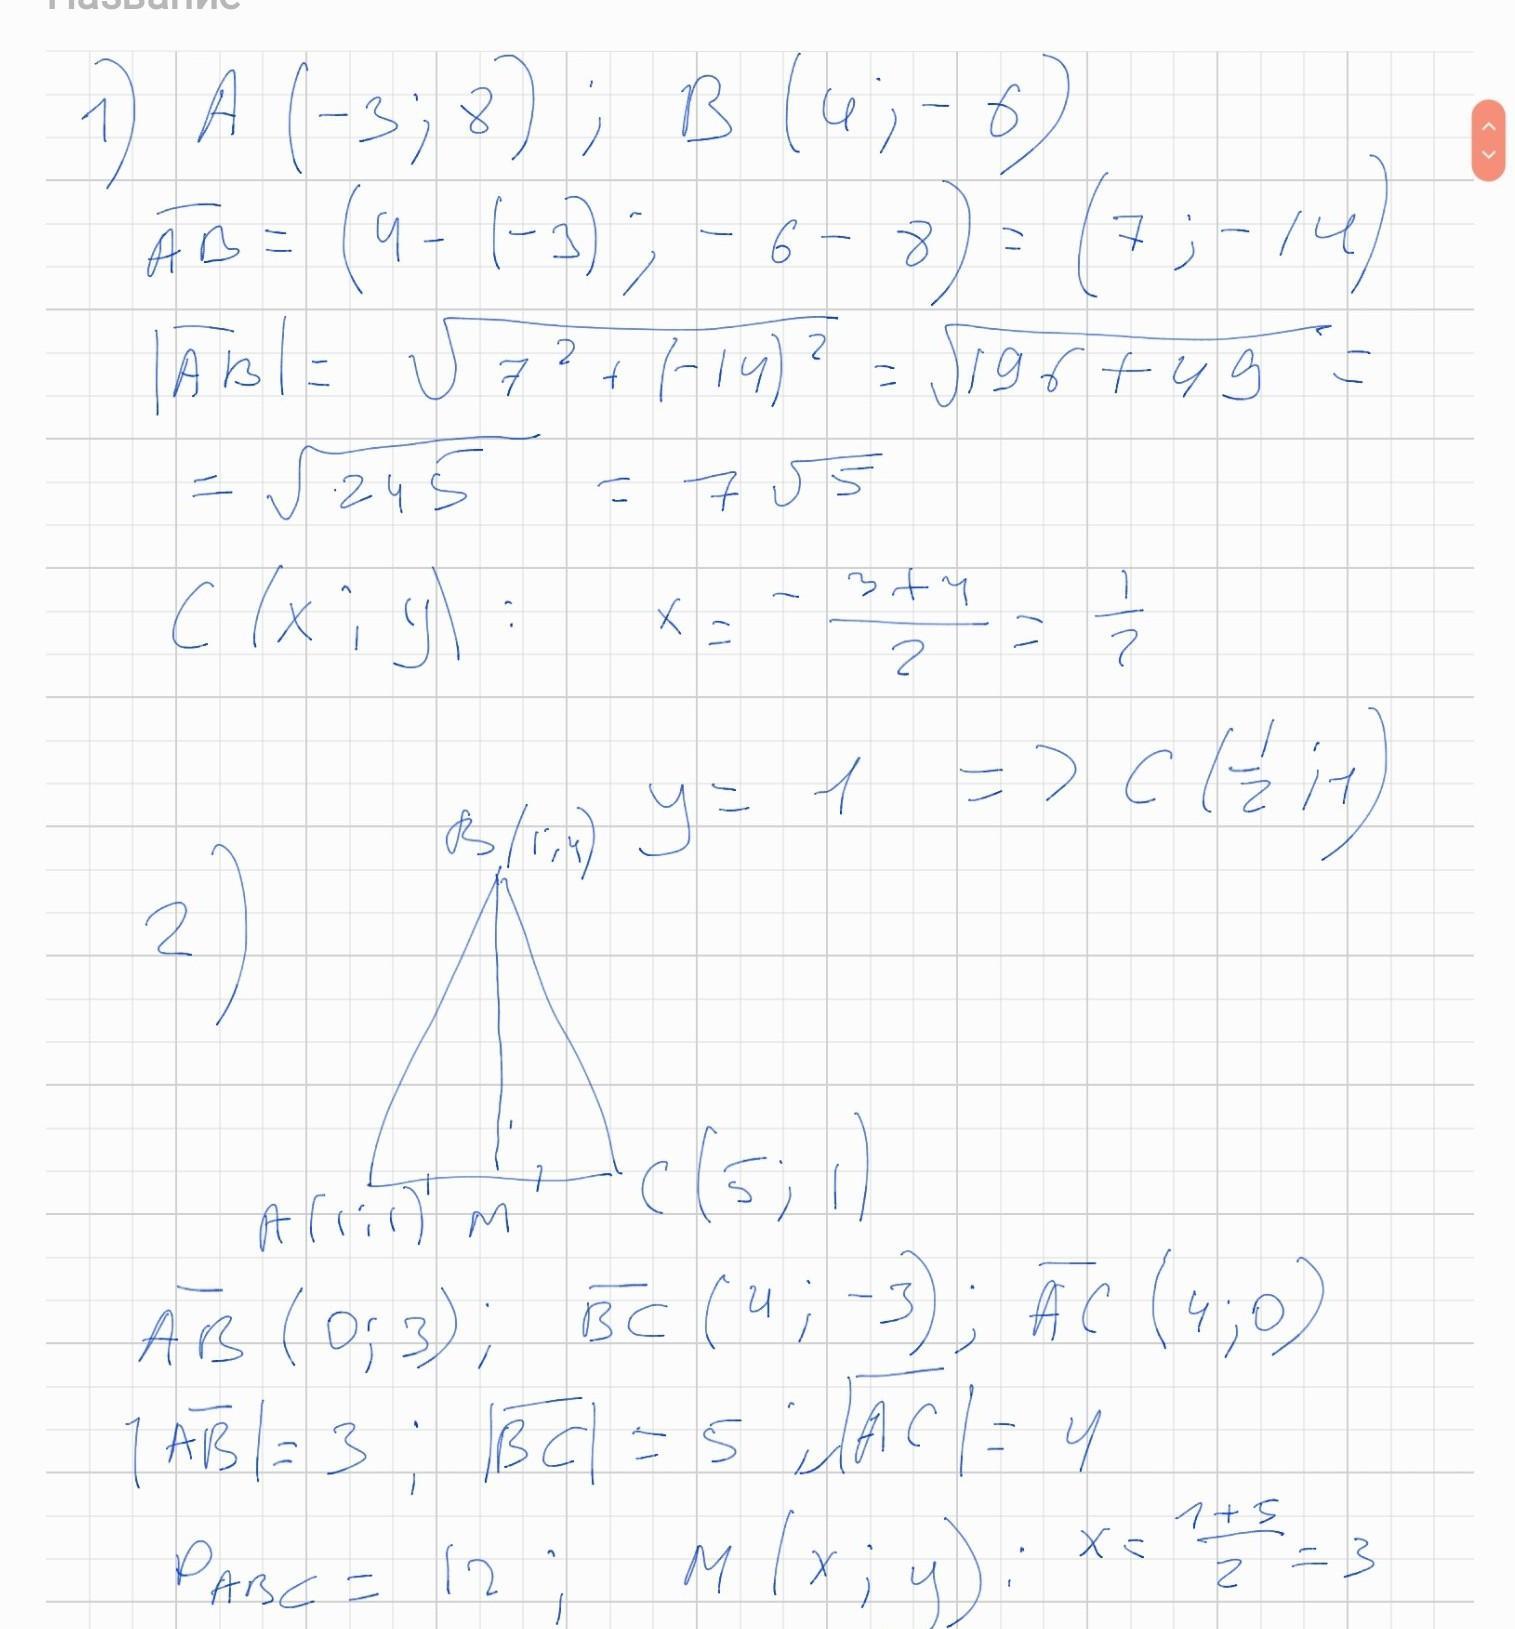 Название
1) A (-3; 8) ; B (4; -6)
AB = (4 - (-3); -6 - 8) = (7; -14)
|AB| = √(7² + (-14)²) = √(196 + 49) =
= √245 = 7√5
C (x; y) : x = (-3+4)/2 = 1/2
y = 1 => C (1/2; 1)
2)
B (1; 4)
A (1; 1) M C (5; 1)
AB (0; 3); BC (4; -3); AC (4; 0)
|AB| = 3; |BC| = 5; |AC| = 4
P ABC = 12; M (x; y): x = (1+5)/2 = 3